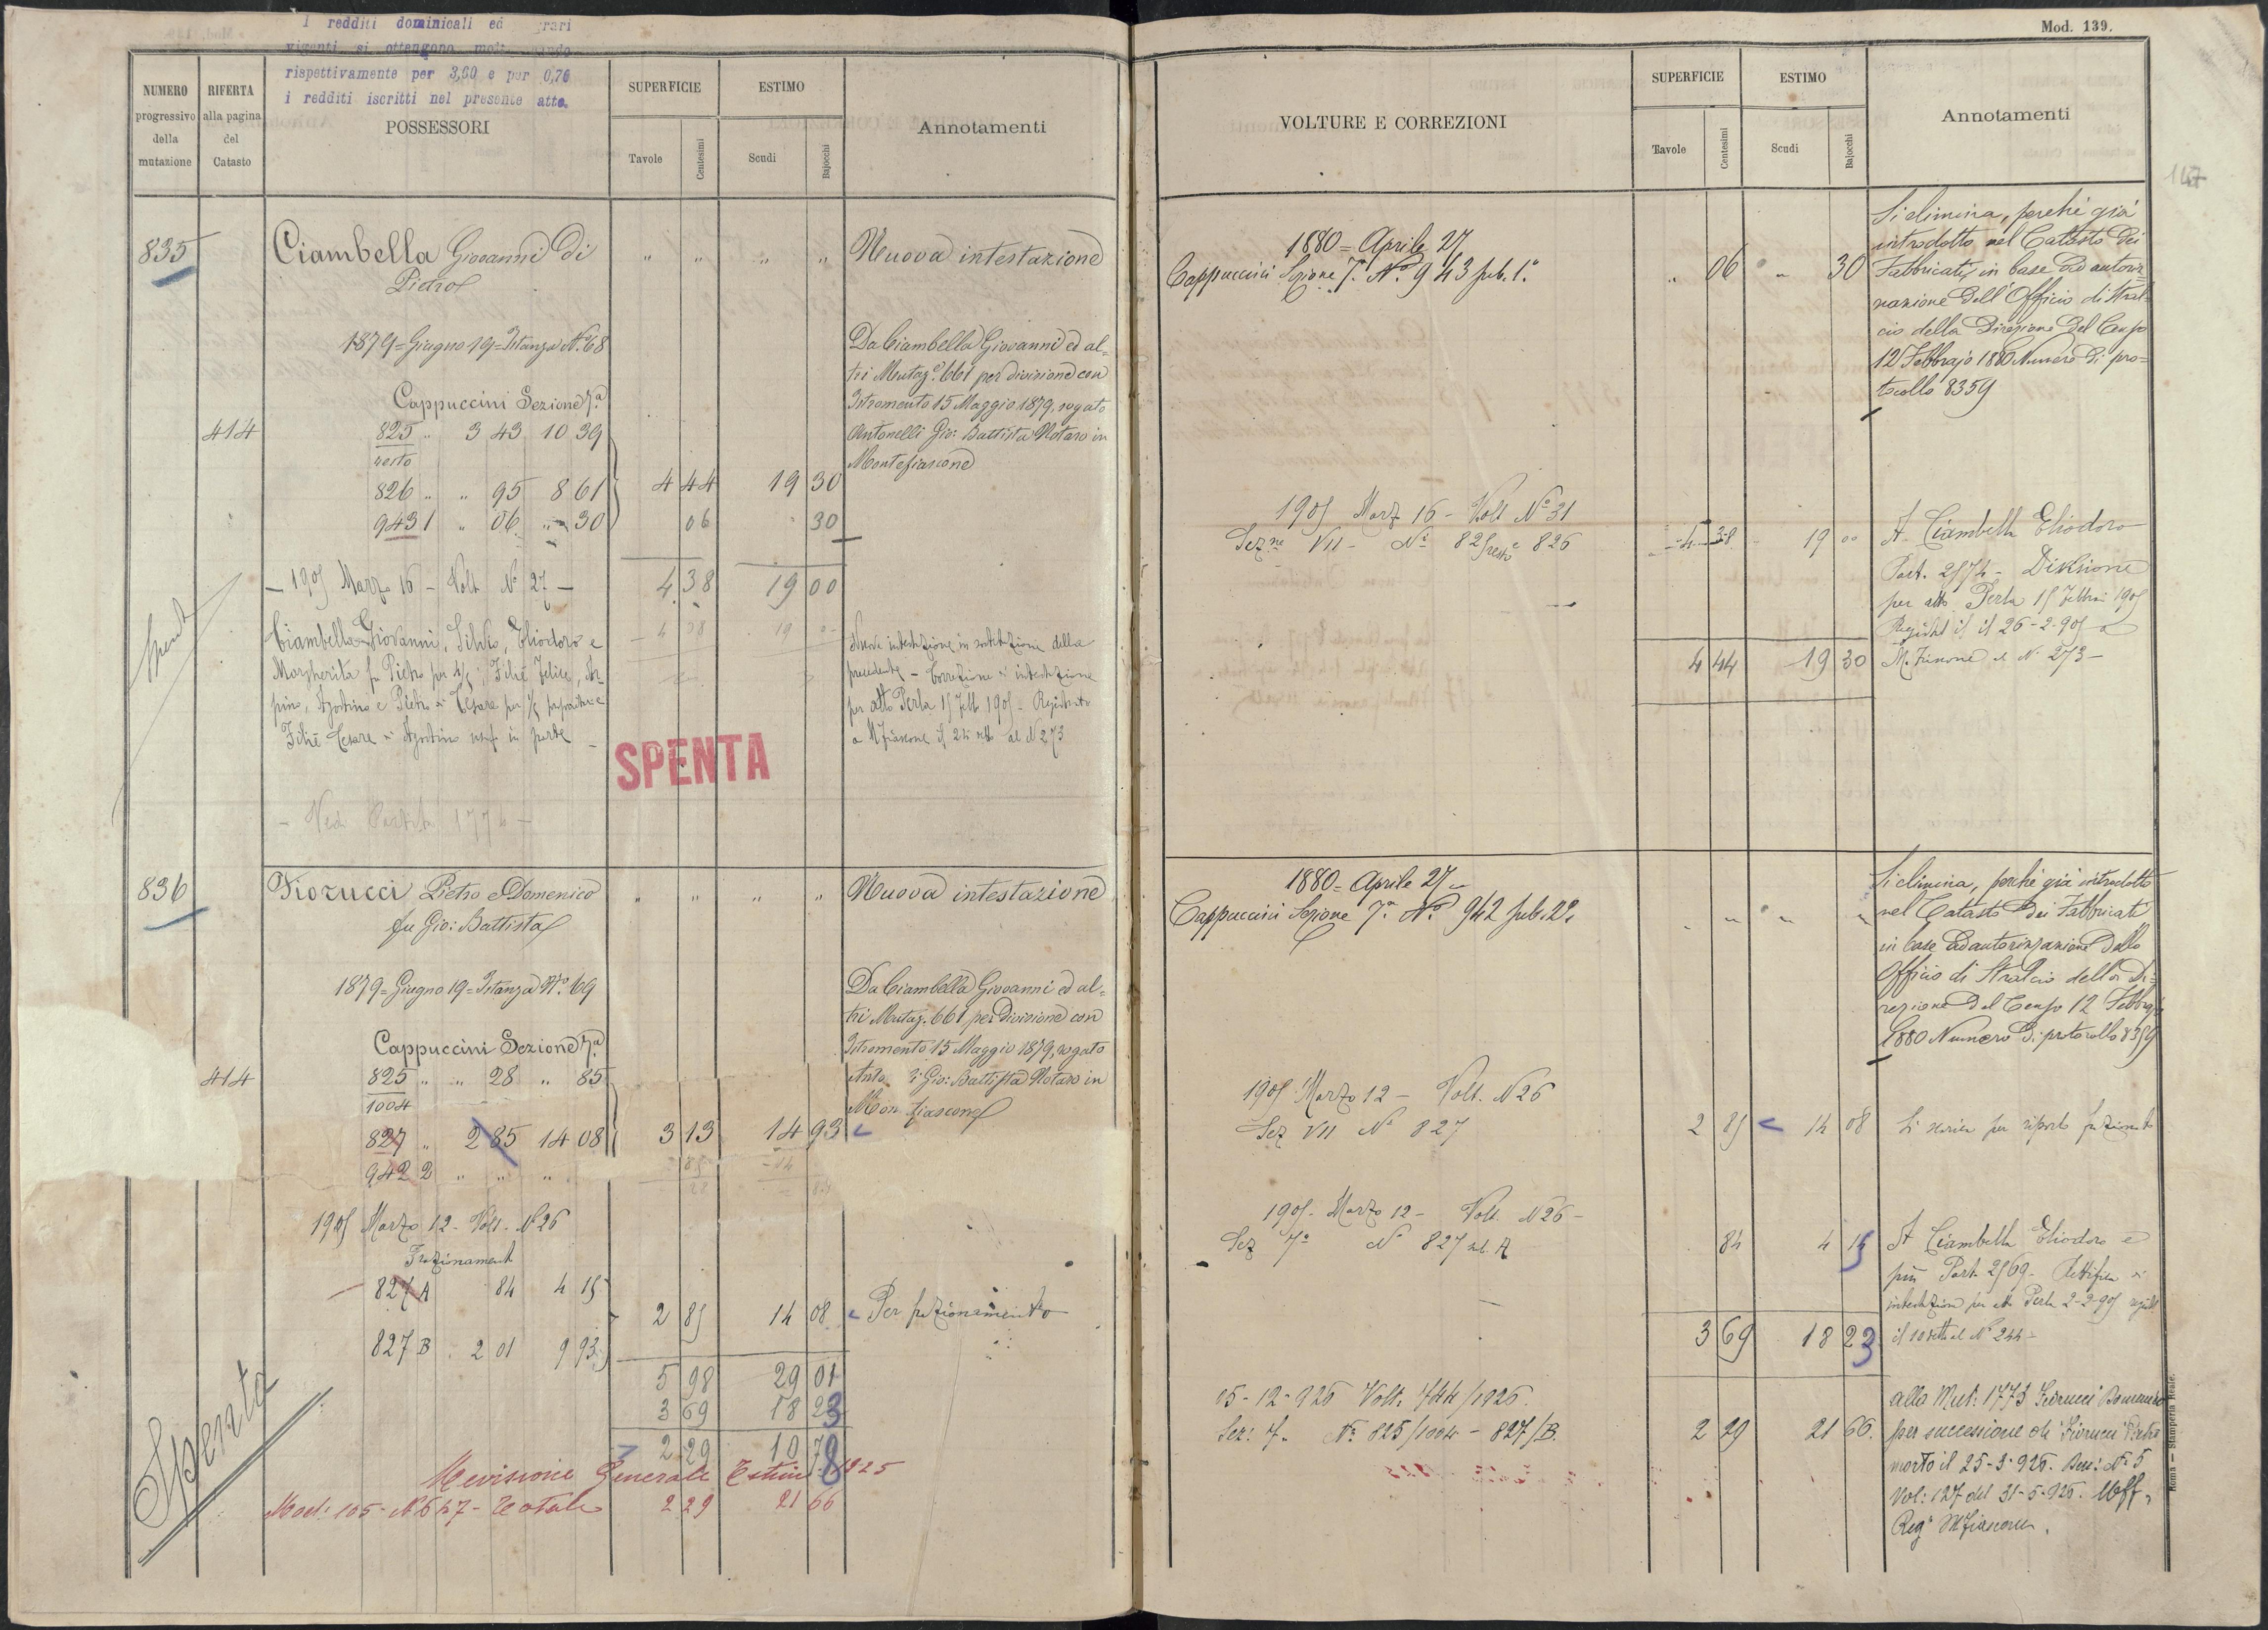 I redditi dominicali ed
vigenti si ottengono
rispettivamente per 3,60 e per 0,76
i redditi iscritti nel presente atto.
NUMERO progressivo della mutazione
RIFERTA alla pagina del Catasto
POSSESSORI
SUPERFICIE
Tavole
Centesimi
ESTIMO
Scudi
Bajocchi
Annotamenti
835
Ciambella Giovanni di
Pietro
" " " "
Nuova intestazione
1879 = Giugno 19 = Istanza N.° 68
Da Ciambella Giovanni ed al=
tri Mutaz.e 661 per divisione con
Istromento 15 Maggio 1879, rogato
Antonelli Gio: Battista Notaro in
Montefiascone
Cappuccini Sezione 7.a
414
825 " 3 43 10 39
resto
826 " " 95 8 61
4 44 19 30
943 1 " 06 " 30
06 30
4 38 19 00
— 1905 Marzo 16 — Volt N° 27 —
Spenta
Ciambella Giovanni, Silvio, Eliodoro e
Margherita fu Pietro per 4/5; Filiè Felice,
pino, Agostino e Pietro di Cesare per 1/5 proprietari e
Filiè Cesare di Agostino usuf. in parte —
Nuova intestazione in sostituzione della
precedente — Correzione di intestazione
per atto Perla 15 Febb 1905 — Registrato
a Mfiascone il al N 273
SPENTA
— Vedi Partita 1774 —
836
Fiorucci Pietro e Domenico
fu Gio: Battista
" " " "
Nuova intestazione
1879 = Giugno 19 = Istanza N.° 69
Da Ciambella Giovanni ed al=
tri Mutaz. 661 per Divisione con
Istromento 15 Maggio 1879, rogato
Anto i Gio: Battista Notaro in
Mon fiascone
Cappuccini Sezione 7.a
414
825 " " 28 " 85
1004
827 " 2 85 14 08
3 13 14 93
942 2 " " "
1905 Marzo 12 — Volt. N 26
Frazionamento
827 A 84 4 15
827 B 2 01 9 93
2 85 14 08
Per frazionamento
5 98 29 01
3 69 18 23
2 29 10 78
Spenta
Revisione Generale Estimi 1925
Mod: 105 - N 647 - Totale 2 29 21 66
Mod. 139.
147
VOLTURE E CORREZIONI
SUPERFICIE
Tavole
Centesimi
ESTIMO
Scudi
Bajocchi
Annotamenti
1880 = Aprile 27
Cappuccini Sezione 7.a N.° 943 sub. 1.°
" 06 " 30
Si elimina, perchè già
introdotto nel Catasto dei
Fabbricati in base ad autoriz=
zazione dell'Officio di Stral=
cio della Direzione del Censo
12 Febbrajo 1880 Numero di pro=
tocollo 8359
1905 Marz 16 — Volt N° 31
Sez.ne VII — N.i 825 resto e 826
4 38 19 00
A Ciambella Eliodoro
Part. 2574 — Divisione
per atto Perla 15 Febbraio 1905
Registrato il 26-2-905 a
M.Fiascone al N. 273 —
4 44 19 30
1880 = Aprile 27
Cappuccini Sezione 7.a N.° 942 sub. 2.°
" " " "
Si elimina, perchè già introdotto
nel Catasto dei Fabbricati
in base ad autorizzazione dello
Officio di Stralcio della Di=
rezione del Censo 12 Febbrajo
1880 Numero di protocollo 8359
1905 Marzo 12 — Volt. N 26
Sez VII N° 827
2 85 14 08
Si scarica per riporto frazionato
1905 — Marzo 12 — Volt. N 26 —
Sez 7a N° 827 sub. A
84 4 15
A Ciambella Eliodoro e
più Part. 2569 — Rettifica di
intestazione per atto Perla 2-2-905 regist
il 10 detto al N° 244 —
3 69 18 23
15-12-926 Volt. 744/1926.
Sez: 7a N.i 825/1004 - 827/B.
2 29 21 66.
alla Mut: 1773 Fiorucci Domenico
per successione di Fiorucci Pietro
morto il 25-3-926. Den: N° 5
Vol: 127 del 31-5-926. Uff.
Reg° Mfiascone.
Roma — Stamperia Reale.